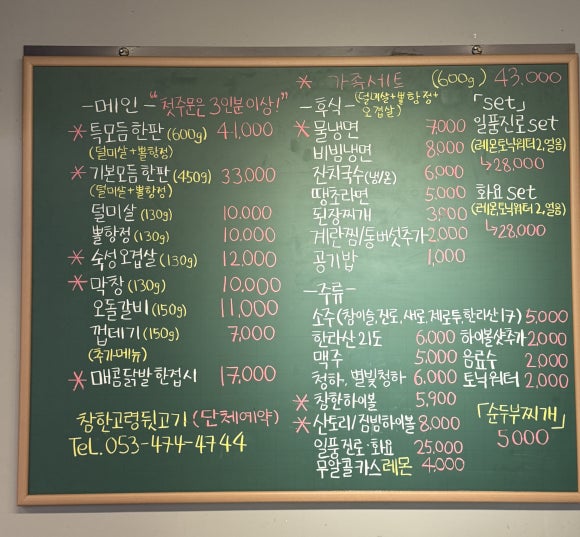 * 가족세트 (600g) 43,000
(덜미살+뽈항정+오겹살)
-메인- "첫주문은 3인분이상!"
* 특모듬한판 (600g) 41,000
(덜미살+뽈항정)
* 기본모듬한판 (450g) 33,000
(덜미살+뽈항정)
덜미살 (130g) 10,000
뽈항정 (130g) 10,000
* 숙성오겹살 (130g) 12,000
* 막창 (130g) 10,000
오돌갈비 (150g) 11,000
껍데기 (150g) 7,000
(추가메뉴)
* 매콤닭발 한접시 17,000
참한고령뒷고기 (단체예약)
TeL. 053-474-4744
-후식-
* 물냉면 7,000
비빔냉면 8,000
잔치국수 (냉/온) 6,000
땡초라면 5,000
된장찌개 3,000
계란찜/통버섯추가 2,000
공기밥 1,000
-주류-
소주 (참이슬, 진로, 새로, 제로투, 한라산17) 5,000
한라산21도 6,000
맥주 5,000
청하, 별빛청하 6,000
* 참한하이볼 5,900
* 산토리/짐빔하이볼 8,000
일품진로·화요 25,000
무알콜카스레몬 4,000
하이볼샷추가 2,000
음료수 2,000
토닉워터 2,000
「set」
일품진로 set
(레몬토닉워터2,얼음)
↳28,000
화요 set
(레몬토닉워터2,얼음)
↳28,000
「순두부찌개」
5000